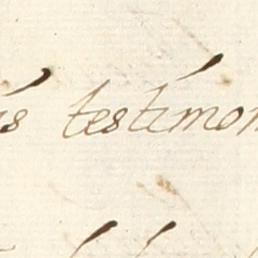 is testimon